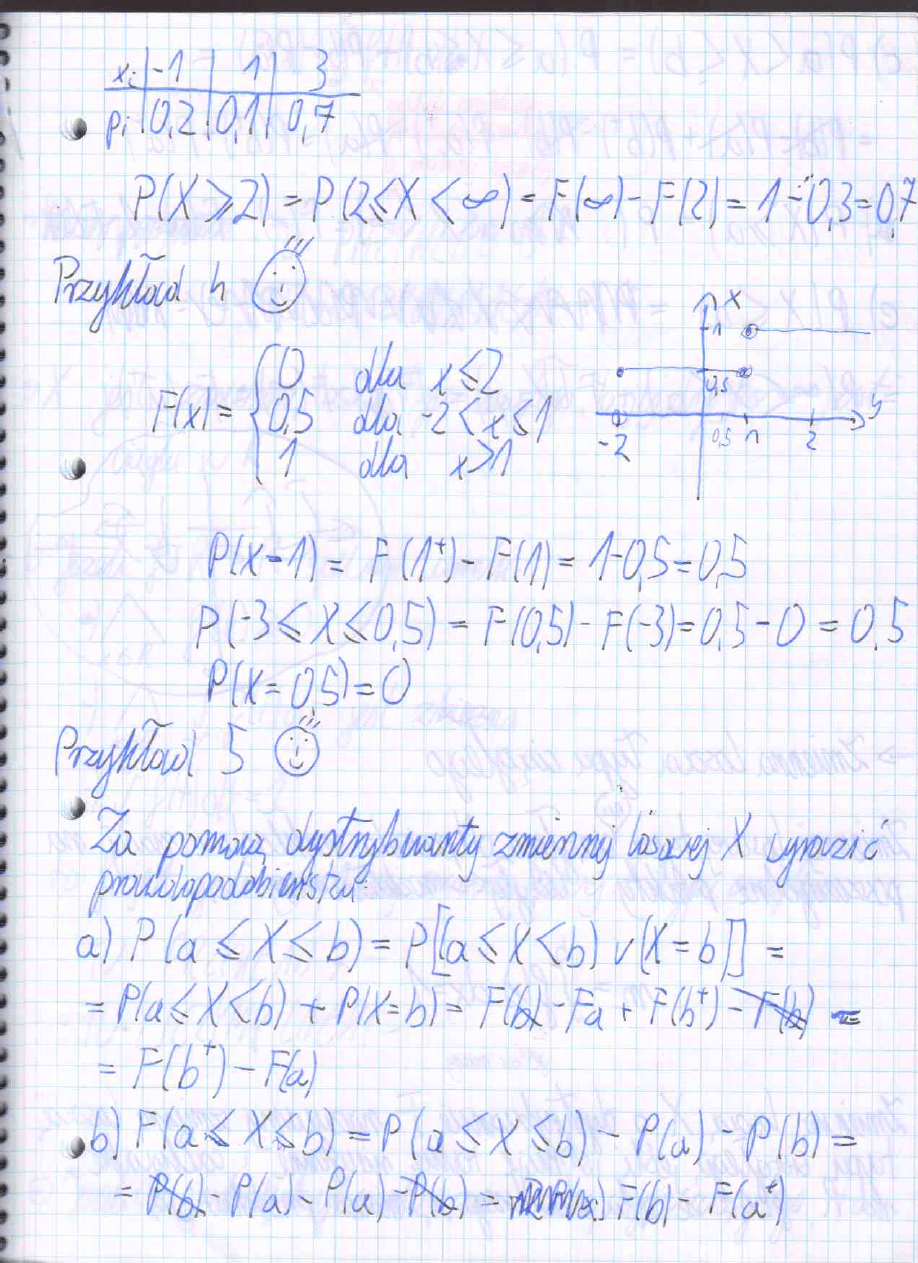 xi | -1 | 1 | 3
pi | 0,2 | 0,1 | 0,7
P(X ≥ 2) = P(2 ≤ X < ∞) = F(∞) - F(2) = 1 - 0,3 = 0,7
Przykład 4
F(x) = { 0 dla x ≤ 2
0,5 dla -2 < x ≤ 1
1 dla x > 1
x
1
0,5
y
-2 0,5 1 2
P(X=1) = F(1⁺) - F(1) = 1-0,5 = 0,5
P(-3 ≤ X ≤ 0,5) = F(0,5) - F(-3) = 0,5 - 0 = 0,5
P(X = 0,5) = 0
Przykład 5
Za pomocą dystrybuanty zmiennej losowej X wyrazić
prawdopodobieństwa:
a) P(a ≤ X ≤ b) = P[(a ≤ X < b) v (X = b)] =
= P(a ≤ X < b) + P(X = b) = F(b) - Fa + F(b⁺) - F(b) =
= F(b⁺) - F(a)
b) F(a ≤ X ≤ b) = P(a ≤ X ≤ b) - P(a) - P(b) =
= P(b) - P(a) - P(a) - P(b) = F(b) - F(a⁺)